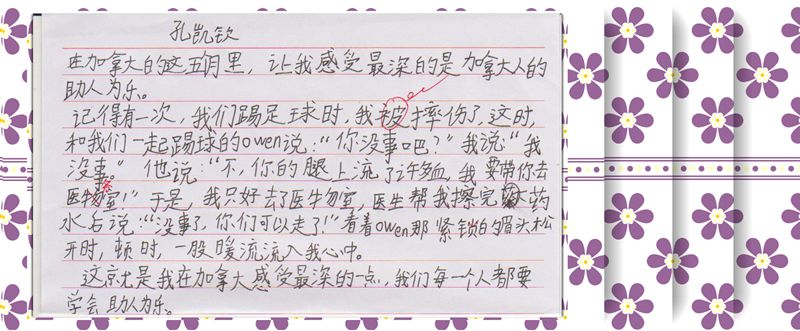 孔凯钦
在加拿大的这五个月里，让我感受最深的是加拿大人的
助人为乐。
记得有一次，我们踢足球时，我被摔伤了，这时，
和我们一起踢球的owen说：“你没事吧？”我说：“我
没事。”他说：“不，你的腿上流了许多血，我要带你去
医务室！”于是，我只好去了医务室，医生帮我擦完药
水后说：“没事了，你们可以走了！”看着owen那紧锁的眉头松
开时，顿时，一股暖流流入我心中。
这就是我在加拿大感受最深的一点，我们每一个人都要
学会助人为乐。